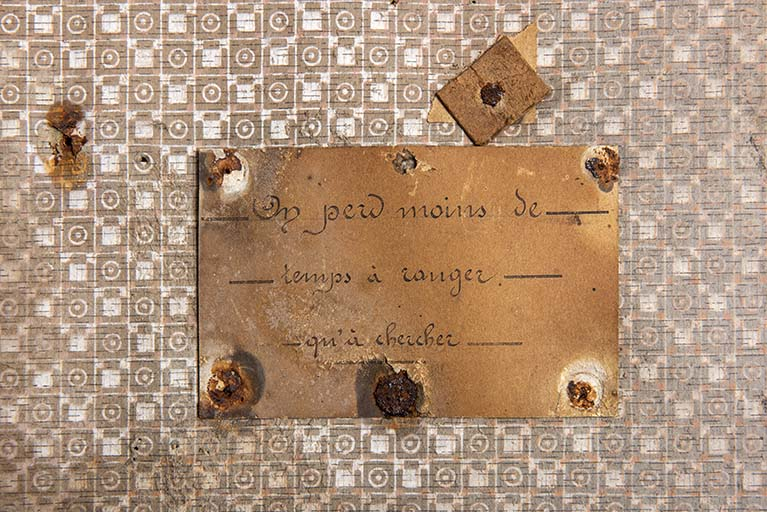 On perd moins de
temps à ranger
qu'à chercher